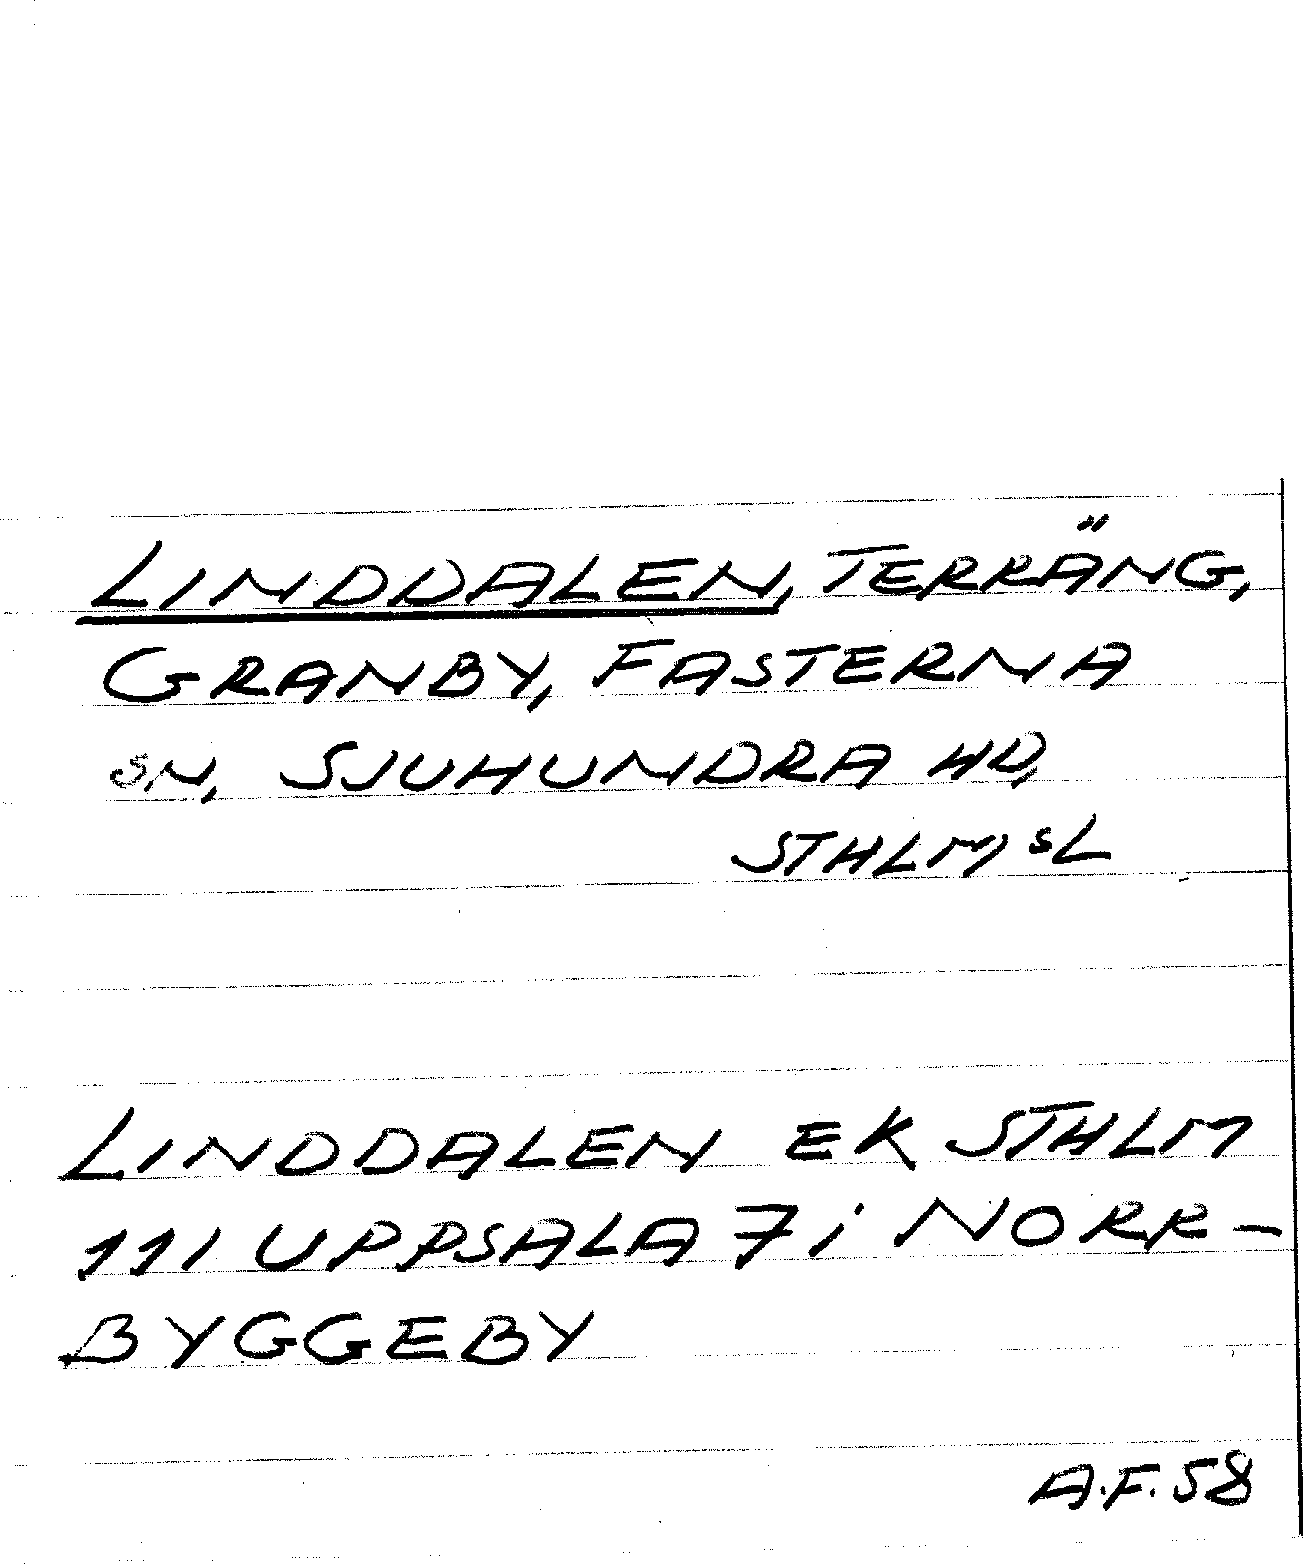 LINDDALEN, TERRÄNG,
GRANBY, FASTERNA
SN, SJUHUNDRA HD,
STHLMSL
LINDDALEN EK STHLM
111 UPPSALA 7 i NORR-
BYGGEBY
A.F. 58